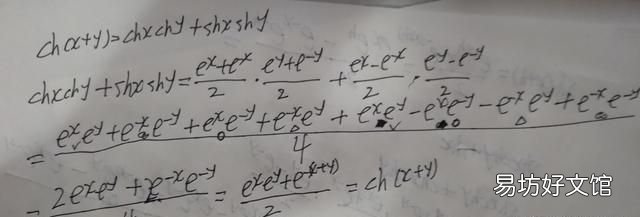 ch(x+y)=chxchy+shxshy
chxchy+shxshy=\frac{e^x+e^{-x}}{2}·\frac{e^y+e^{-y}}{2}+\frac{e^x-e^{-x}}{2}·\frac{e^y-e^{-y}}{2}
=\frac{e^xe^y+e^{-x}e^{-y}+e^xe^{-y}+e^{-x}e^y+e^xe^y-e^xe^{-y}-e^{-x}e^y+e^{-x}e^{-y}}{4}
=\frac{2e^xe^y+2e^{-x}e^{-y}}{4}=\frac{e^xe^y+e^{-(x+y)}}{2}=ch(x+y)
易坊好文馆